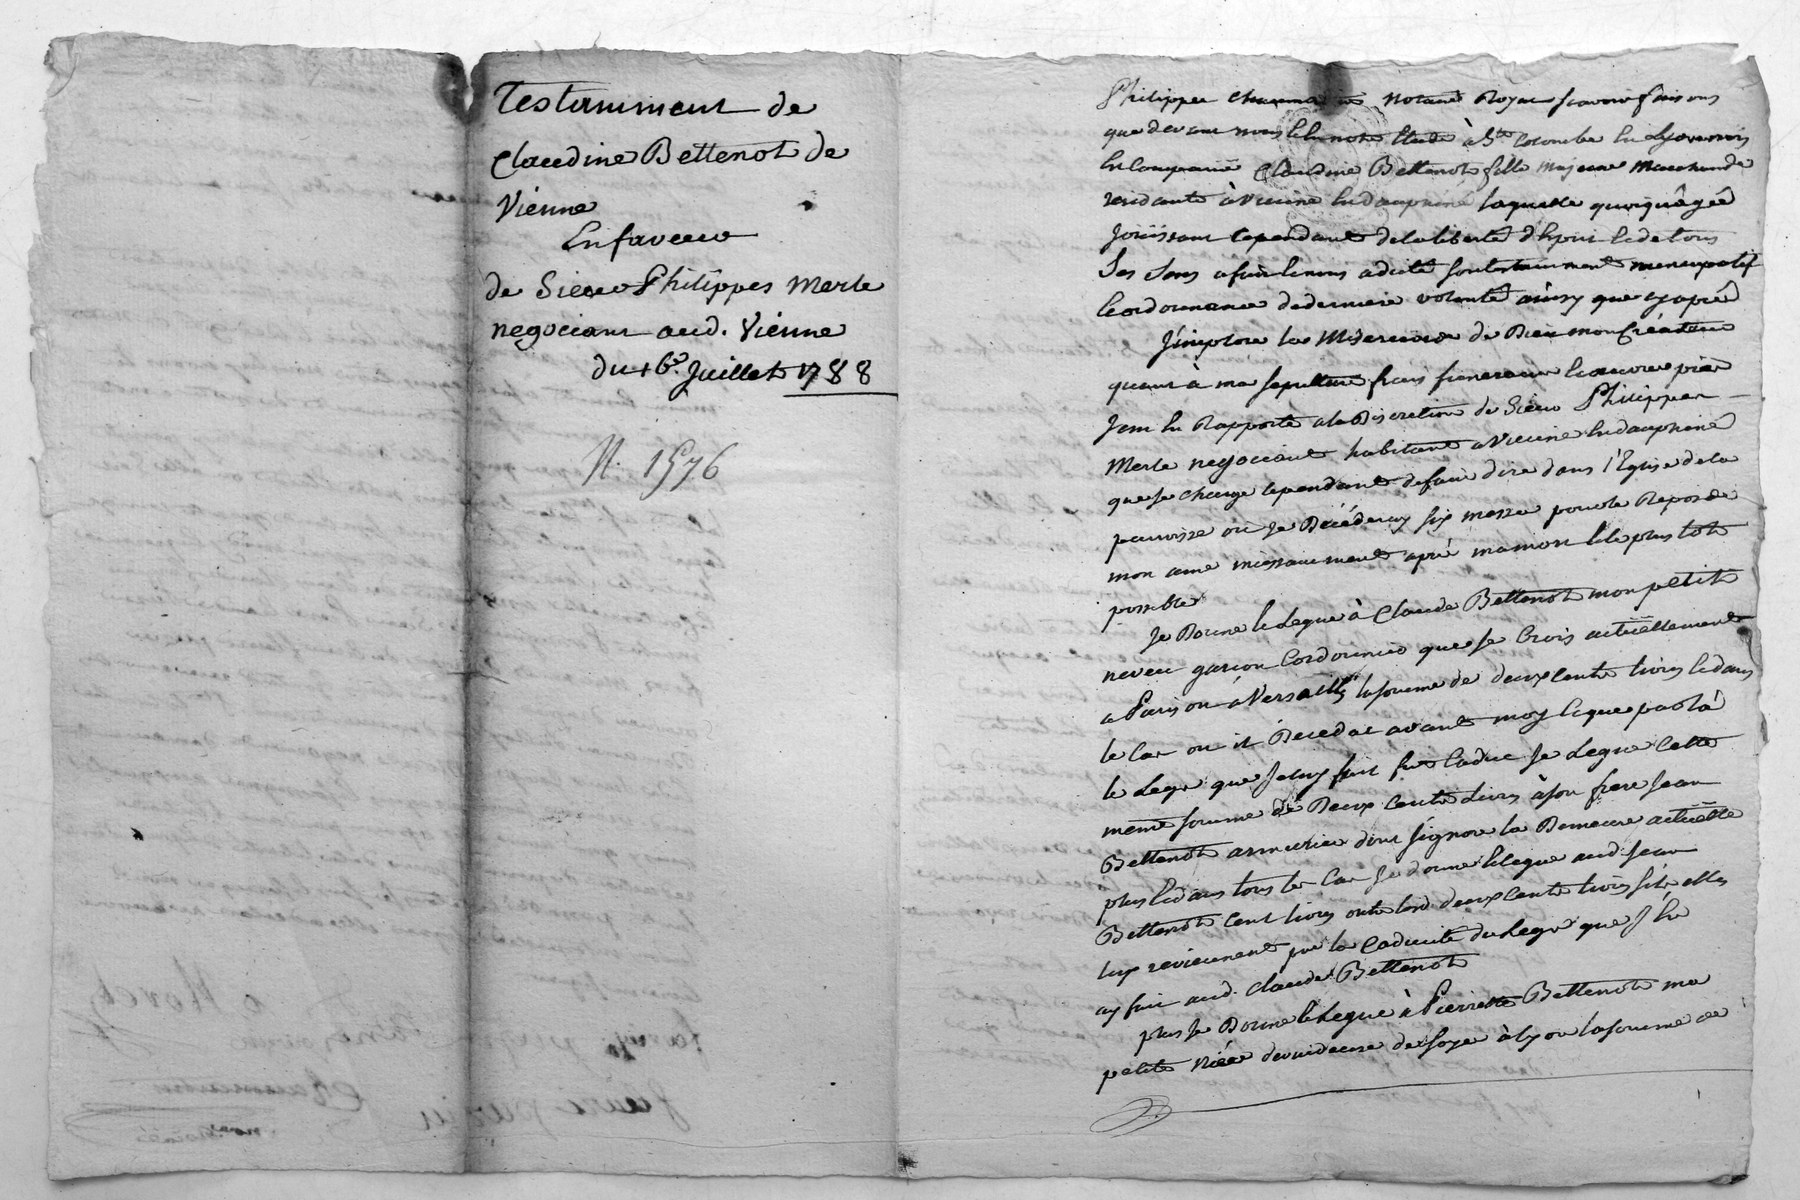 Testamment de
Claudine Bettenot de
Vienne
En faveur
de Sieur Philippes Merle
negociant aud. Vienne
du 16e. Juillet 1788
N. 1576
Philippe notaire Royal scavoir faisons
que devant nous led. notre Etude à Ste Colombe en Lyonnois
En Comparuë Claudine Bettenot fille majeure Marchande
residante à Vienne En dauphiné laquelle quoiquâgéé
Joüissant Cependant de la liberté d'Esprit Et de tous
Ses Sens a fait Et nous a dicté son testament nuncupatif
Et ordonnance de derniere volonté ainsy que cy aprés
J'implore la Misericorde de Dieu mon Créateur
quant à ma sepulture frais funeraux Et œuvres pies
Jem En Rapporte a la Discretion de Sieur Philippes
Merle negociant habitant a Vienne En dauphiné
que je charge Cependant de faire dire dans l'Eglise de la
parroisse où je Décéderay six messes pour le Repos de
mon ame incessamment aprés ma mort Et le plus tôt
possible
Je Donne Et Legue à Claude Bettenot mon petit
neveu garçon Cordonnier que je Crois actuëllement
a Paris ou à Versailles la somme de deux Cents livres Et dans
le Cas ou il Decedat avant moy Et que par là
le Legs que Je luy fait fut Caduc Je Legue Cette
même somme de Deux Cents Livres à son frere Jean
Bettenot armurier dont J'ignore la Demeure actuëlle
plus Et dans tous les Cas Je donne Et legue aud. Jean
Bettenot Cent livres outre lesd. deux Cents livres si Elles
luy reviennent par la Caducité du Legs que J'En
ay fait aud. Claude Bettenot
plus Je Donne Et Legue à Pierrette Bettenot ma
petite Niéce devuideuse de soye à Lyon la somme de